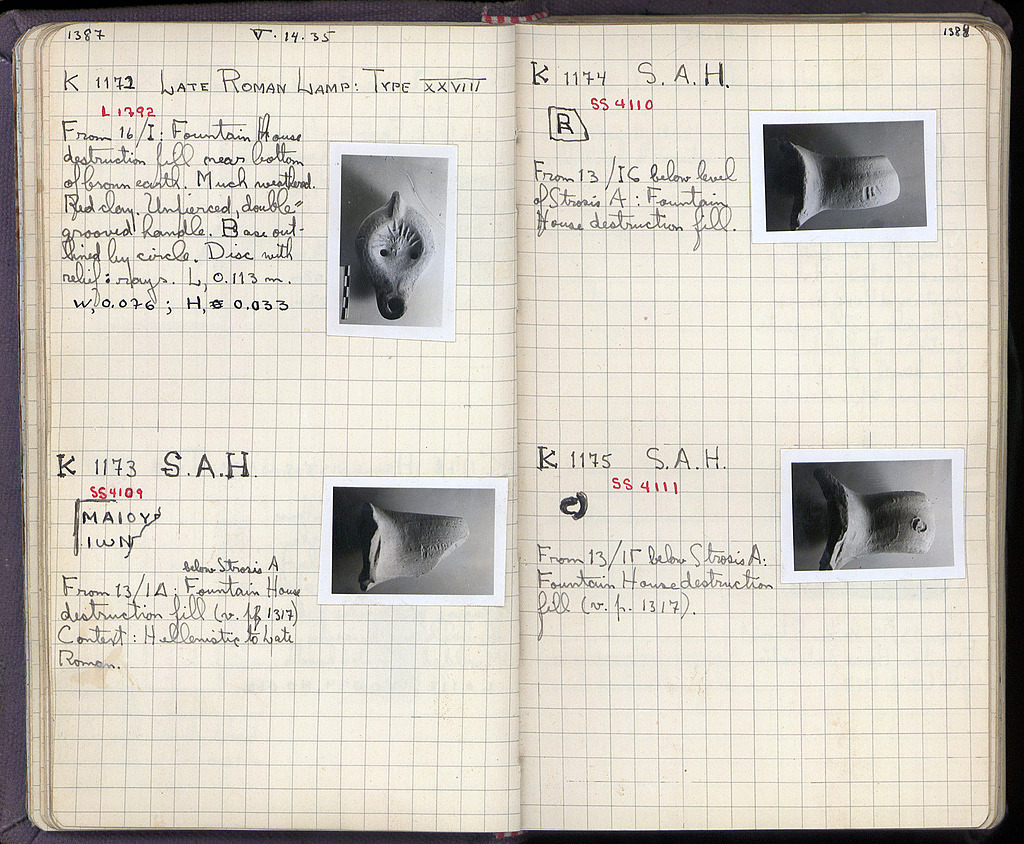 1387
V · 14 · 35
K 1172 LATE ROMAN LAMP: TYPE XXVIII
L 1792
From 16/I: Fountain House
destruction fill near bottom
of brown earth. Much weathered.
Red clay. Unpierced, double-
grooved handle. Base out-
lined by circle. Disc with
relief: rays. L, 0.113 m.
W, 0.076 ; H, 0.033
K 1173 S.A.H.
SS 4109
ΜΑΙΟΥ
ΙWΝ
below Strosis A
From 13/ΙΔ: Fountain House
destruction fill (v. p. 1317)
Context: Hellenistic to Late
Roman.
1388
K 1174 S.A.H.
SS 4110
R
From 13/ΙϚ below level
of Strosis A: Fountain
House destruction fill.
K 1175 S.A.H.
SS 4111
From 13/ΙΓ below Strosis A:
Fountain House destruction
fill (v. p. 1317).